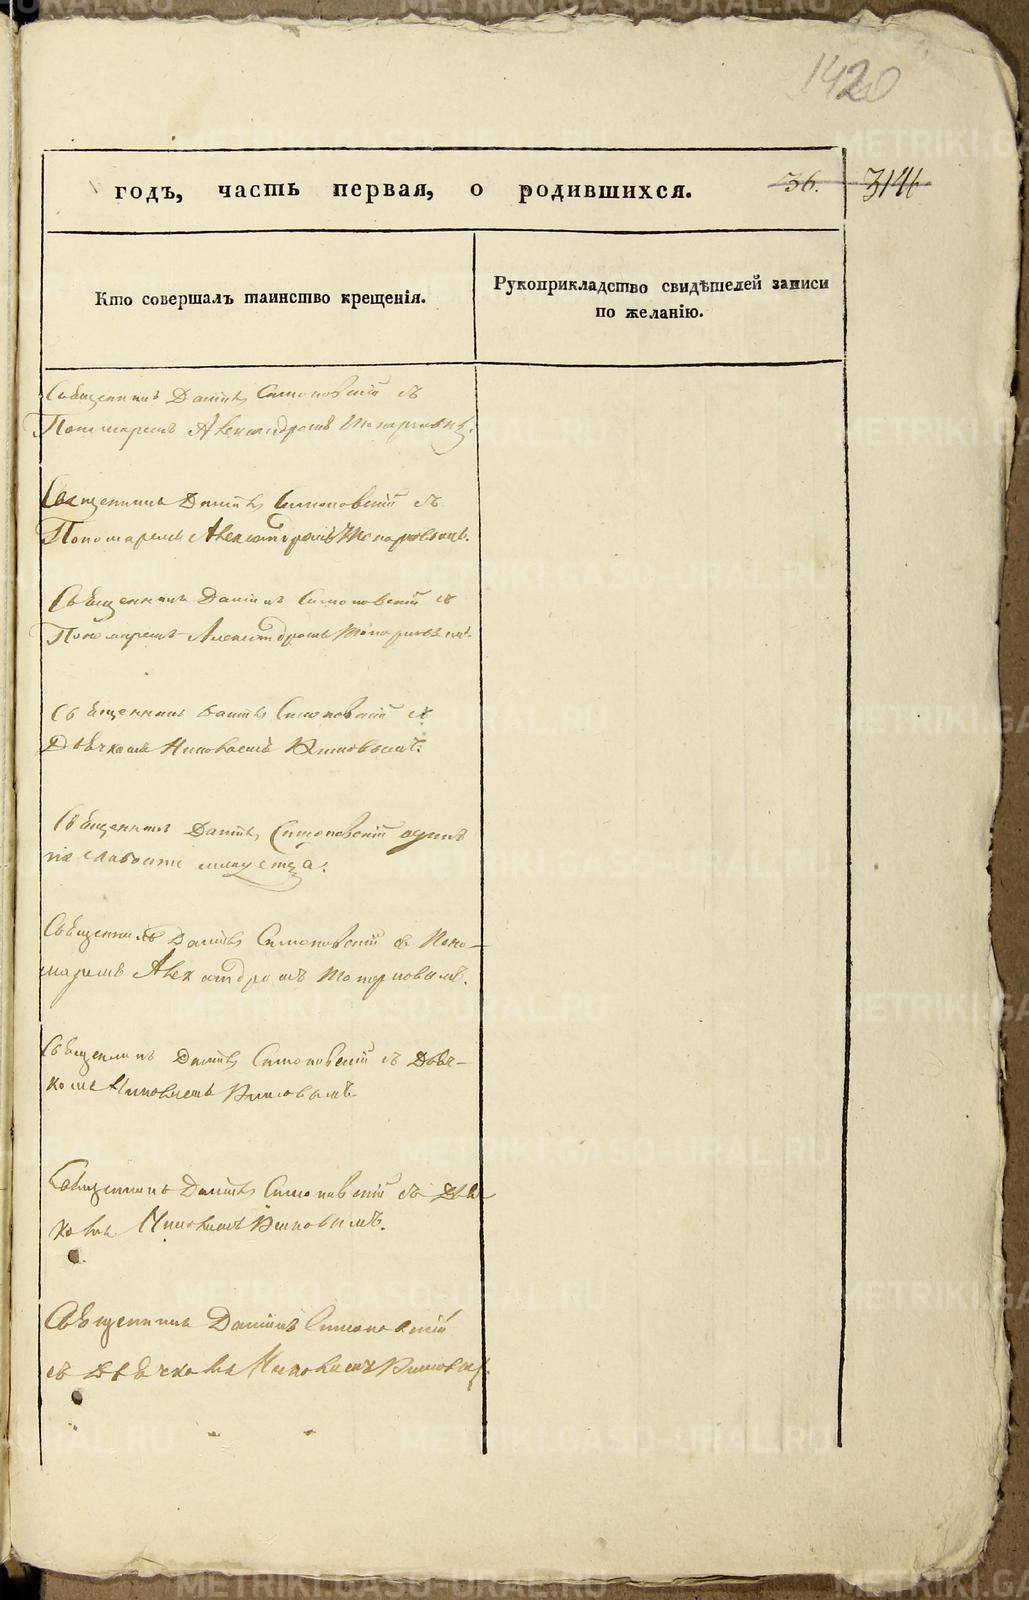 1420
годъ, часть первая, о родившихся. 36.
Кто совершалъ таинство крещенія.
Рукоприкладство свидѣтелей записи
по желанію.
Священникъ Даніилъ Симоновскій съ
Пономаремъ Александромъ
Священникъ Даніилъ Симоновскій съ
Пономаремъ Александромъ
Священникъ Даніилъ Симоновскій съ
Пономаремъ Александромъ
Священникъ Даніилъ Симоновскій съ
Дьячкомъ Николаемъ
Священникъ Даніилъ Симоновскій одинъ
по слабости младенца.
Священникъ Даніилъ Симоновскій съ Поно-
маремъ Александромъ
Священникъ Даніилъ Симоновскій съ Дьяч-
комъ Николаемъ
Священникъ Даніилъ Симоновскій съ Дьяч
комъ Николаемъ
Священникъ Даніилъ Симоновскій
съ Дьячкомъ Николаемъ
METRIKI.GASO-URAL.RU